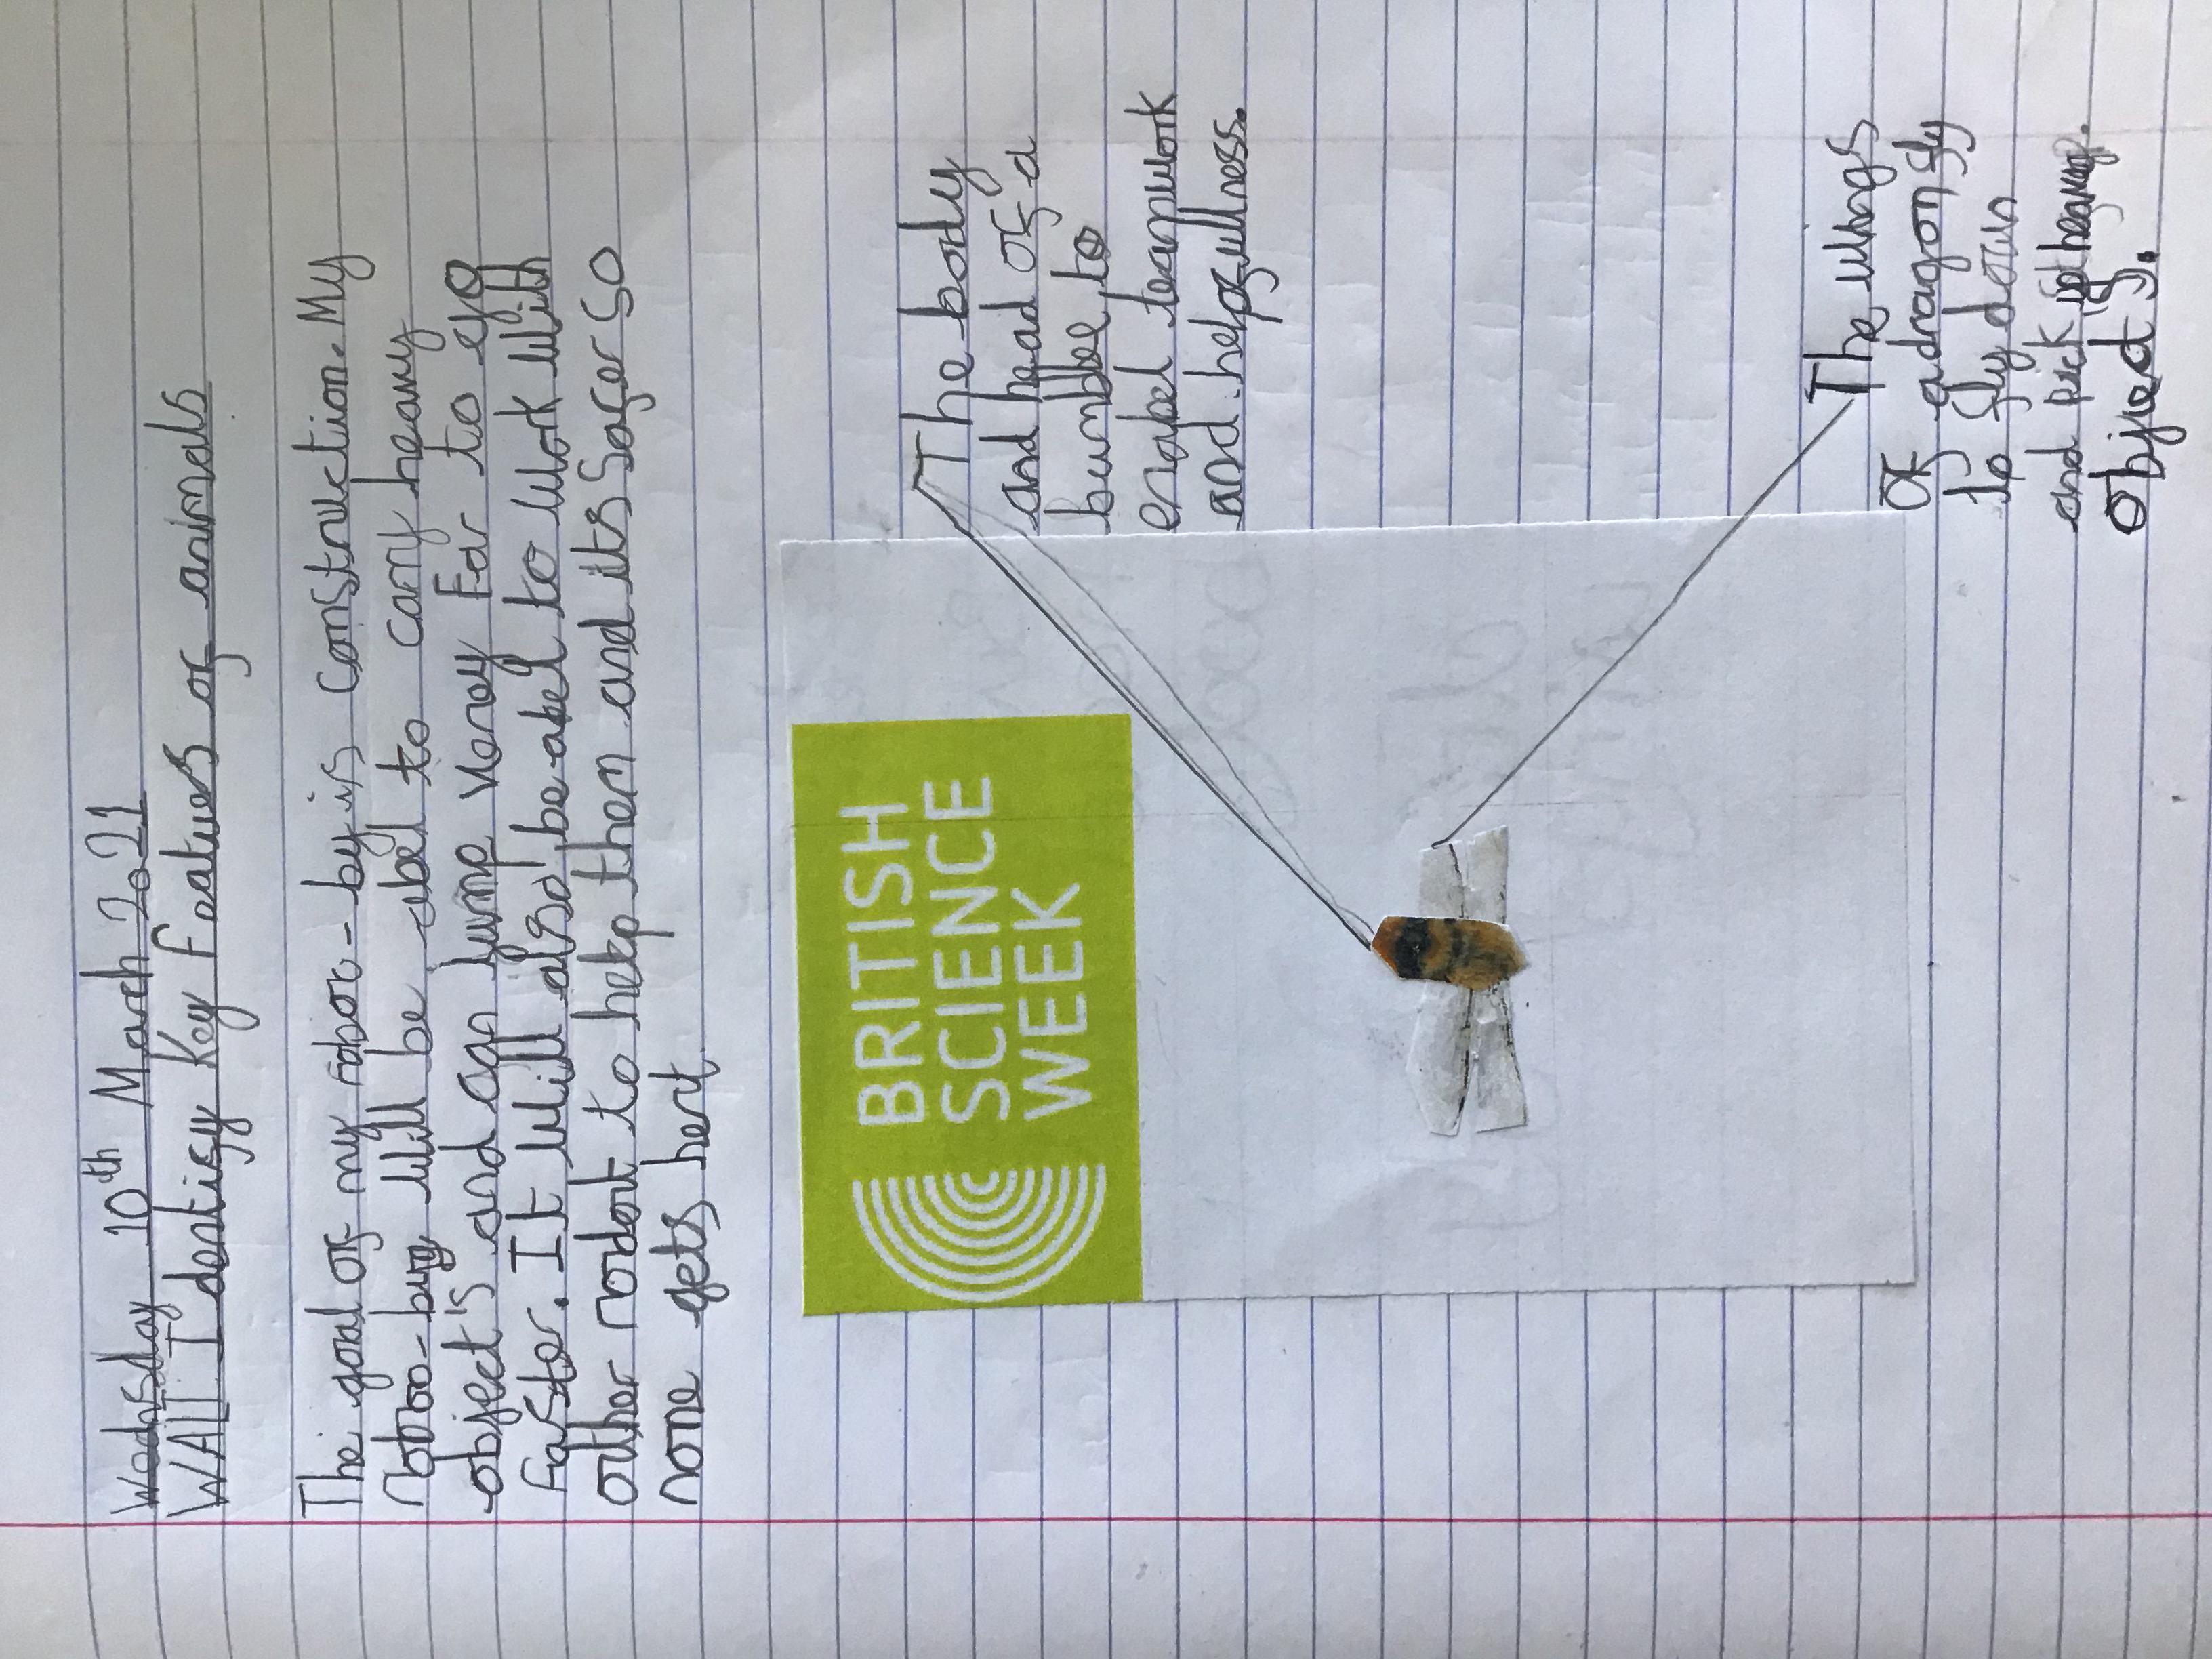 Wednsday 10th March 2021
WALT Identify Key Features of animals
The goal of my roboc-by is construction. My
robo-bug will be abel to carry heavy
object's and can jump verey Far to go
faster. It will also be abel to work with
other robort to help them and its Safer so
none gets hert
BRITISH
SCIENCE
WEEK
The body
and head of a
bumblee to
enabel teamwork
and helpfullness.
The wings
of a dragonfly
to fly down
and pick up heavy
objects.